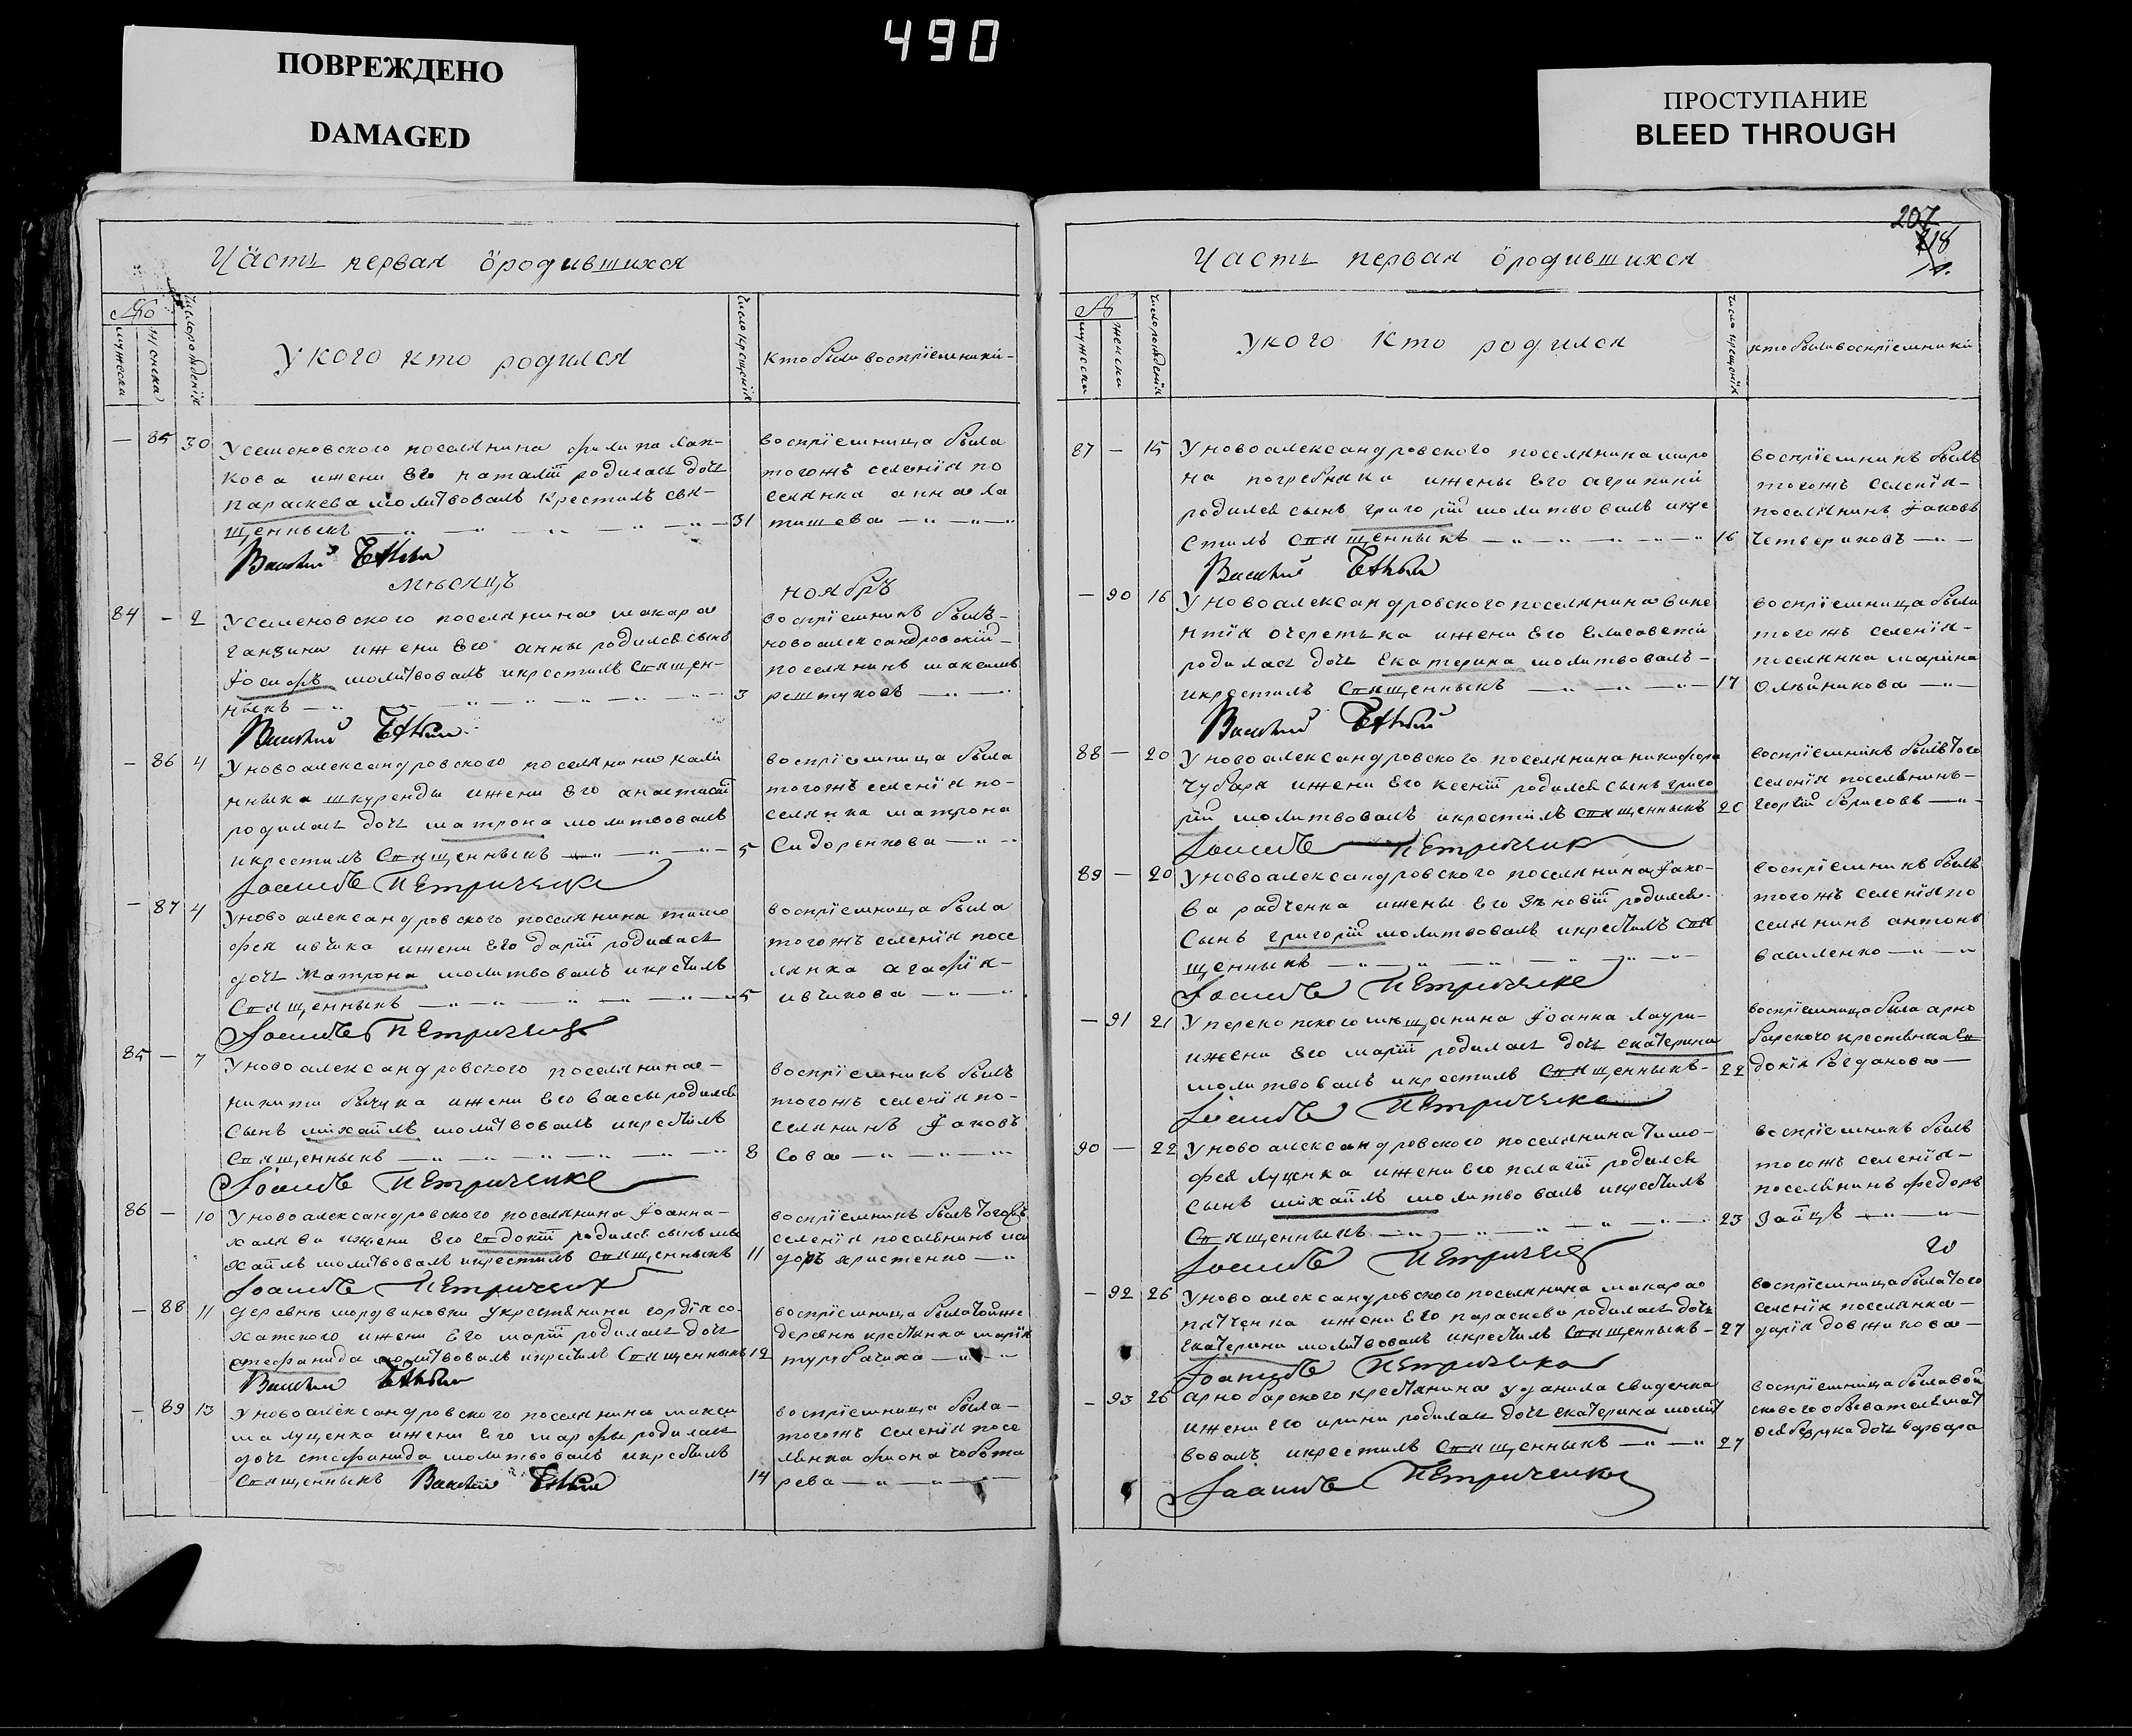 490
ПОВРЕЖДЕНО
DAMAGED
ПРОСТУПАНИЕ
BLEED THROUGH
Часть первая ородившихся
№
мужеска
женска
число рождения
У кого кто родился
число крещенія
кто были воспріемники
— 85 30 У семеновского поселянина филипа лап-
кова и жени его наталіи родилась дочь
параскева молитвовалъ крестилъ свя-
щенныкъ 31
Василий
воспріемница была
тогожъ селенія по
селянка анна ла
тишева
месяцъ ноябрь
84 — 2 У семеновского поселянина макара
ганзина и жени его анны родился сынъ
Іосифъ молитвовалъ и крестилъ Священ-
ныкъ 3
Василий
воспріемникъ былъ
новоалександровскій
поселянинъ максимъ
решетуковъ
— 86 4 У новоалександровского поселянина кали
ныка шкуренды и жени его анастасіи
родилась дочь матрона молитвовалъ
и крестилъ Священныкъ 5
Іоаннъ Петриченко
воспріемница была
тогожъ селенія по-
селянка матрона
Сидоренкова
— 87 4 У новоалександровского поселянина тимо
фея ивчика и жени его даріи родилась
дочь Матрона молитвовалъ и крестилъ
Священныкъ 5
Іоаннъ Петриченко
воспріемница была
тогожъ селенія посе
лянка агафія
ивчикова
85 — 7 У новоалександровского поселянина
никити бычука и жени его вассы родился
Сынъ михаилъ молитвовалъ и крестилъ
Священныкъ 8
Іоаннъ Петриченко
воспріемникъ былъ
тогожъ селенія по-
селянинъ Іаковъ
Сова
86 — 10 У новоалександровского поселянина Іоанна
халява и жени его евдокіи родился сынъ ми
хаилъ молитвовалъ и крестилъ Священныкъ 11
Іоаннъ Петриченко
воспріемникъ былъ тогожъ
селенія поселянинъ иси
доръ христенко
— 88 11 деревнѣ мордвиновки у крестянина гордія со-
хатского и жени его маріи родилась дочь
стефанида молитвовалъ и крестилъ Священныкъ 12
Василий
воспріемница была тойже
деревнѣ крестянка марія
турбачиха
— 89 13 У новоалександровского поселянина макси
ма луценка и жени его марфы родилась
дочь стефанида молитвовалъ и крестилъ
Священныкъ Василий 14
воспріемница была
тогожъ селенія посе
лянка фиона чобота
рева
207
218
Часть первая ородившихся
№
мужеска
женска
число рожденія
У кого кто родился
число крещенія
кто были воспріемники
87 — 15 У новоалександровского поселянина миро
на погребняка и жены его агрипини
родился сынъ григорій молитвовалъ и кре
стилъ Священныкъ 16
Василий
воспріемникъ былъ
тогожъ селенія
поселянинъ Іаковъ
Четвериковъ
— 90 16 У новоалександровского поселянина вике
нтія очеретька и жени его Елисавети
родилась дочь Екатерина молитвовалъ
и крестилъ Священныкъ 17
Василий
воспріемница была
тогожъ селенія
поселянка марина
Олейникова
88 — 20 У новоалександровского поселянина никифора
чубаря и жени его ксеніи родился сынъ григо
рій молитвовалъ и крестилъ Священныкъ 20
Іоаннъ Петриченко
воспріемникъ былъ того
селенія поселянинъ
георгій борисовъ
89 — 20 У новоалександровского поселянина Іако-
ва радченка и жены его зѣновіи родился
Сынъ григорій молитвовалъ и крестилъ Свя
щенныкъ
Іоаннъ Петриченко
воспріемникъ былъ
тогожъ селенія по
селянинъ антонъ
василенко
— 91 21 У перекопского мещанина Іоанна лаури-
и жени его маріи родилась дочь екатерина
молитвовалъ и крестилъ Священныкъ 22
Іоаннъ Петриченко
воспріемница была арно
барского крестянка Ев
докія богданова
90 — 22 У новоалександровского поселянина тимо-
фея луценка и жени его пелагіи родился
сынъ михаилъ молитвовалъ и крестилъ
Священныкъ 23
Іоаннъ Петриченко
воспріемникъ былъ
тогожъ селенія
поселянинъ федоръ
заицъ
— 92 26 У новоалександровского поселянина макара
пятченка и жени его параскеви родилась дочь
екатерина молитвовалъ и крестилъ Священныкъ 27
Іоаннъ Петриченко
воспріемница была того
селенія поселянка
дарія довжикова
— 93 26 арнобарского крестянина у данила свиденка
и жени его ирини родилась дочь екатерина молит
вовалъ и крестилъ Священныкъ 27
Іоаннъ Петриченко
воспріемница была вой
скового обывателя мат
фея бедрика дочь варвара